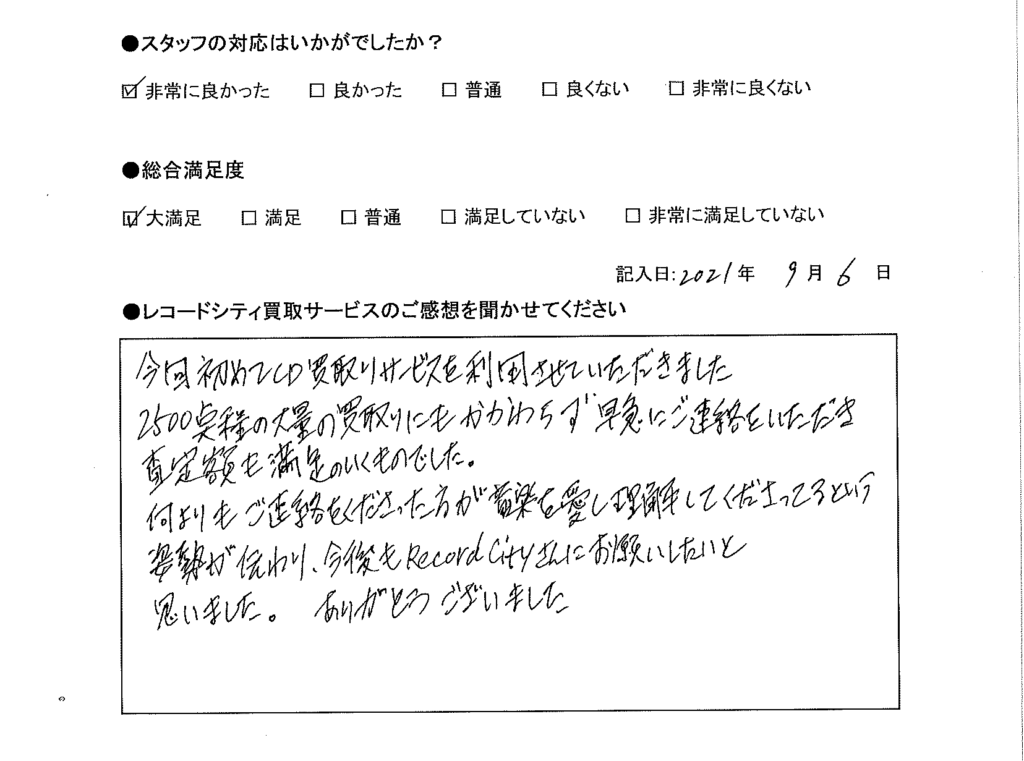 ●スタッフの対応はいかがでしたか？
☑ 非常に良かった □ 良かった □ 普通 □ 良くない □ 非常に良くない
●総合満足度
☑ 大満足 □ 満足 □ 普通 □ 満足していない □ 非常に満足していない
記入日:2021年 9月 6日
●レコードシティ買取サービスのご感想を聞かせてください
今回初めてCD買取りサービスを利用させていただきました
2500点程の大量の買取りにもかかわらず早急にご連絡をいただき
査定額も満足のいくものでした。
何よりもご連絡をくださった方が音楽を愛し理解してくださってるという
姿勢が伝わり、今後もRecord Cityさんにお願いしたいと
思いました。 ありがとうございました